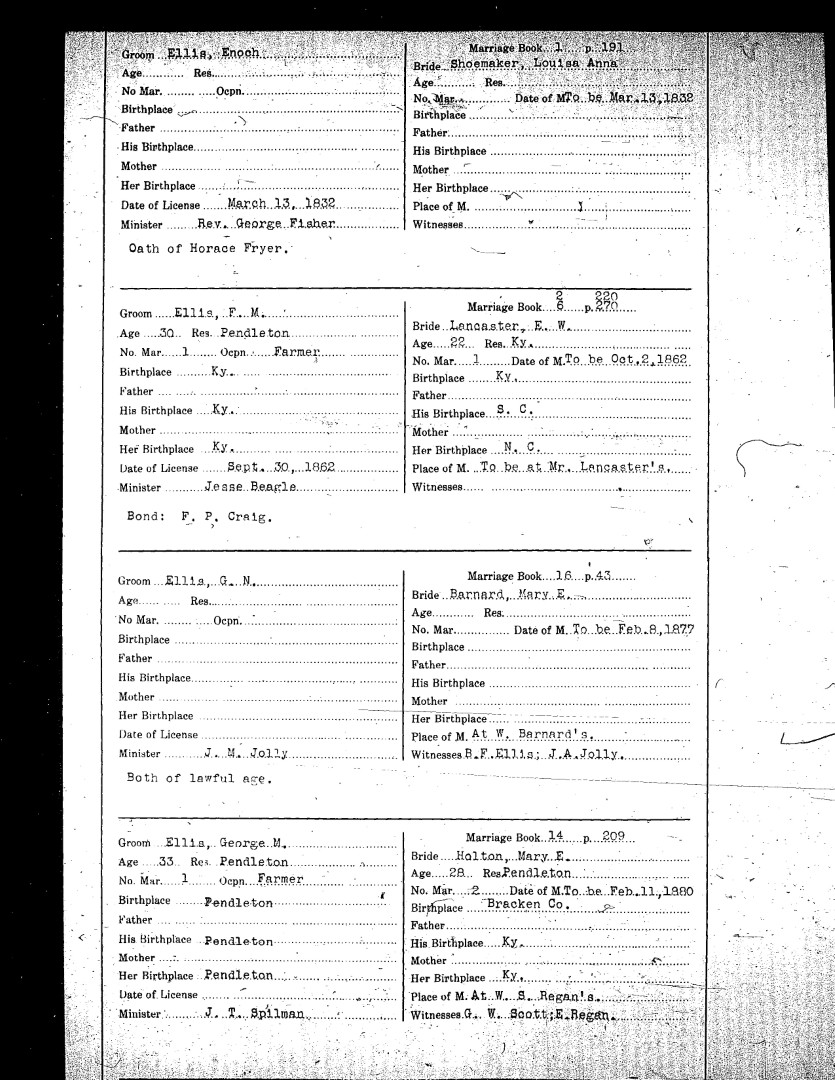 Groom Ellis, Enoch
Age Res.
No Mar. Ocpn.
Birthplace
Father
His Birthplace
Mother
Her Birthplace
Date of License March 13, 1832
Minister Rev. George Fisher
Oath of Horace Fryer.
Marriage Book 1 p. 191
Bride Shoemaker, Louisa Anna
Age Res.
No. Mar. Date of M. To be Mar. 13, 1832
Birthplace
Father
His Birthplace
Mother
Her Birthplace
Place of M.
Witnesses
Groom Ellis, F. M.
Age 30 Res. Pendleton
No. Mar. 1 Ocpn. Farmer
Birthplace Ky.
Father
His Birthplace Ky.
Mother
Her Birthplace Ky.
Date of License Sept. 30, 1862
Minister Jesse Beagle
Bond: F. P. Craig.
2 220
Marriage Book 6 p. 270
Bride Lancaster, E. W.
Age 22 Res. Ky.
No. Mar. 1 Date of M. To be Oct. 2, 1862
Birthplace Ky.
Father
His Birthplace S. C.
Mother
Her Birthplace N. C.
Place of M. To be at Mr. Lancaster's.
Witnesses
Groom Ellis, G. N.
Age Res.
No. Mar. Ocpn.
Birthplace
Father
His Birthplace
Mother
Her Birthplace
Date of License
Minister J. M. Jolly
Both of lawful age.
Marriage Book 16 p. 43
Bride Barnard, Mary E.
Age Res.
No. Mar. Date of M. To be Feb. 8, 1877
Birthplace
Father
His Birthplace
Mother
Her Birthplace
Place of M. At W. Barnard's.
Witnesses B.F.Ellis; J.A.Jolly.
Groom Ellis, George M.
Age 33 Res. Pendleton
No. Mar. 1 Ocpn. Farmer
Birthplace Pendleton
Father
His Birthplace Pendleton
Mother
Her Birthplace Pendleton
Date of License
Minister J. T. Spilman
Marriage Book 14 p. 209
Bride Holton, Mary E.
Age 28 Res. Pendleton
No. Mar. 2 Date of M. To be Feb. 11, 1880
Birthplace Bracken Co.
Father
His Birthplace Ky.
Mother
Her Birthplace Ky.
Place of M. At W. S. Regan's.
Witnesses G. W. Scott; E. Regan.